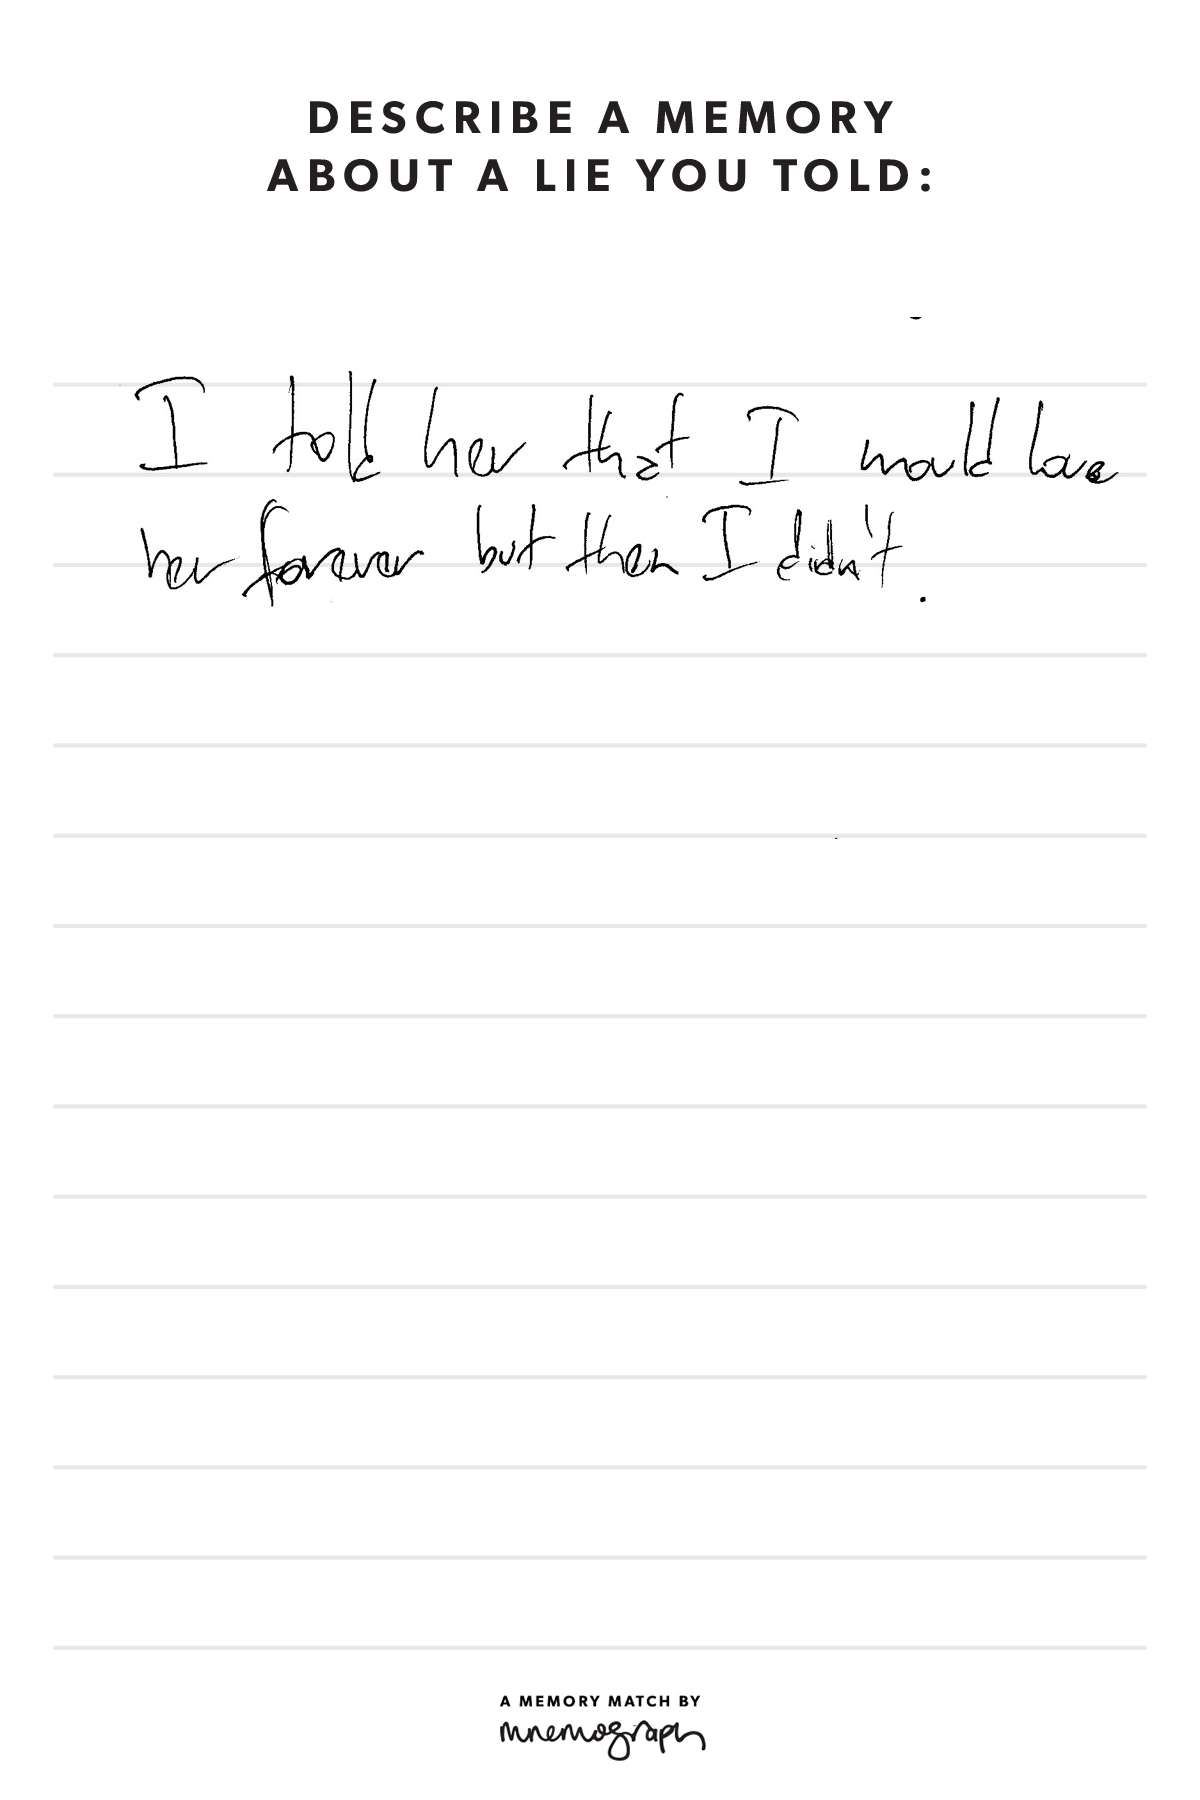 DESCRIBE A MEMORY
ABOUT A LIE YOU TOLD:
I told her that I would love
her forever but then I didn't.
A MEMORY MATCH BY
mnemograph